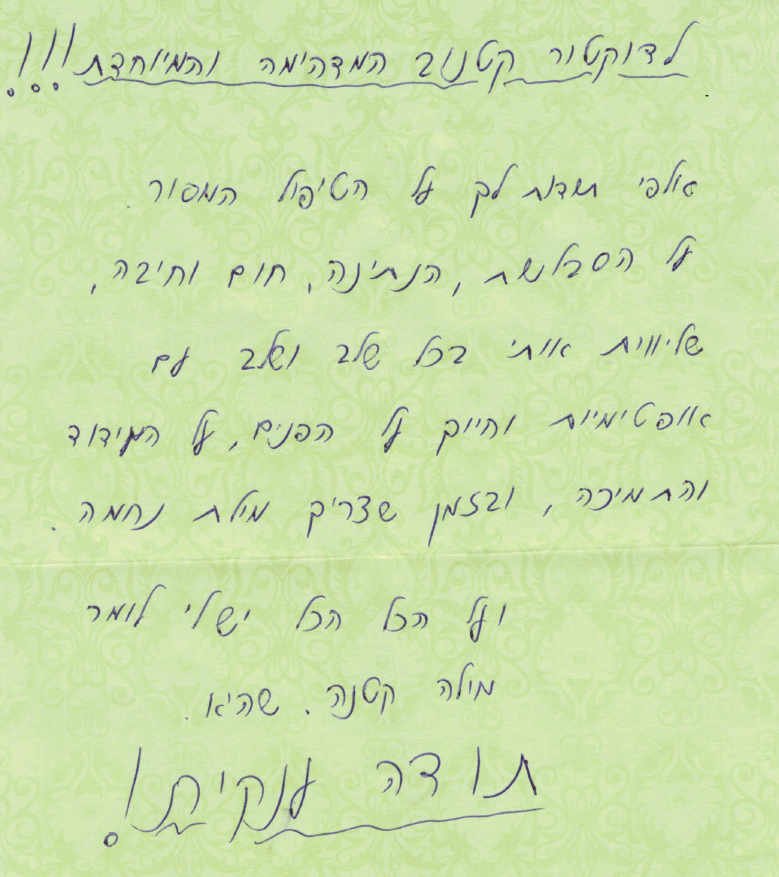 לדוקטור קטנוב המדהימה והמיוחדת!!!
אלפי תודות לך על הטיפול המסור.
על הסבלנות, הנתינה, חום וחיבה,
שליווית אותי בכל שלב ושלב עם
אופטימיות וחיוך על הפנים, על העידוד
והתמיכה, ובזמן שצריך מילת נחמה.
ועל הכל הכל יש לי לומר
מילה קטנה. שהיא.
תודה ענקית!